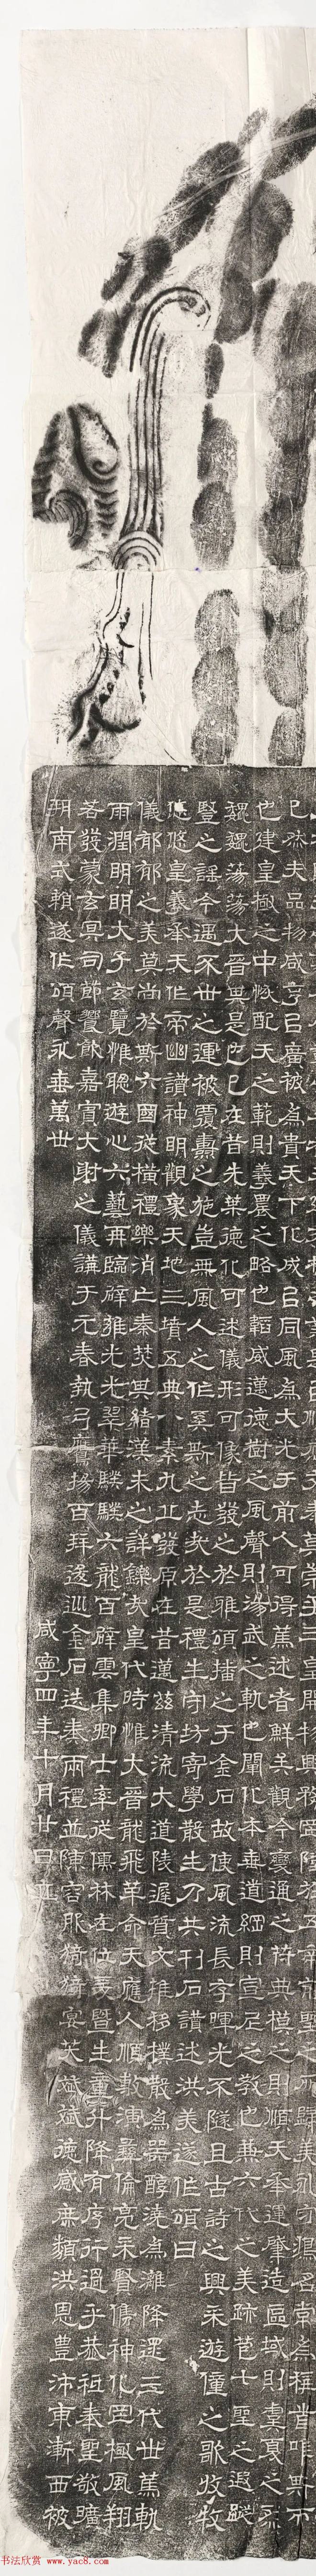 已然夫品物咸亨以廣被為貴天下化成以同風為大光于前人可得蒿述者鮮矣觀今變通之符典模之則順天承運肇造區域則虞夏之烈
也建皇極之中恢配天之範則羲農之略也韜威邁德樹之風聲則湯武之軌也闡化本垂道綱則宣尼之教也兼六代之美跡苞七聖之遐蹤
巍巍蕩蕩大晉其是已在昔先葉德化可述儀形可像皆發之於雅頌播之于金石故使風流長孚暉光不隧且古詩之興采遊僮之歌收牧
豎之謠今遇不世之運被覆燾之施豈無風人之作奚斯之志哉於是禮生守坊寄學散生乃共刊石讚述洪美遂作頌曰
悠悠皇羲承天作帝幽讚神明觀象天地三墳五典八素九丘發原在昔邁茲清流大道陵遲質文推移樸散為器醇澆為漓降逮三代世篤軌
儀郁郁之美莫尚於斯六國從橫禮樂消亡秦焚其緒漢未之詳鑠哉皇代時惟大晉龍飛革命天應人順敷演彝倫亮采賢儁神化罔極風翔
雨潤明明大子玄覽惟聰遊心六藝再臨辟雍光光翠華騤騤六飛百辟雲集卿士率從儒林在位爰暨生童升降有序行過乎恭祗奉聖敬曠
若發蒙玄冥司節饗飲嘉賓大射之儀講于元春執弓鷹揚百拜逡巡金石迭奏兩禮並陳容服猗猗宴笑斌斌德感庶類洪恩豐沛東漸西被
朔南式賴遂作頌聲永垂萬世
咸寧四年十月廿日立
书法欣赏 www.yac8.com